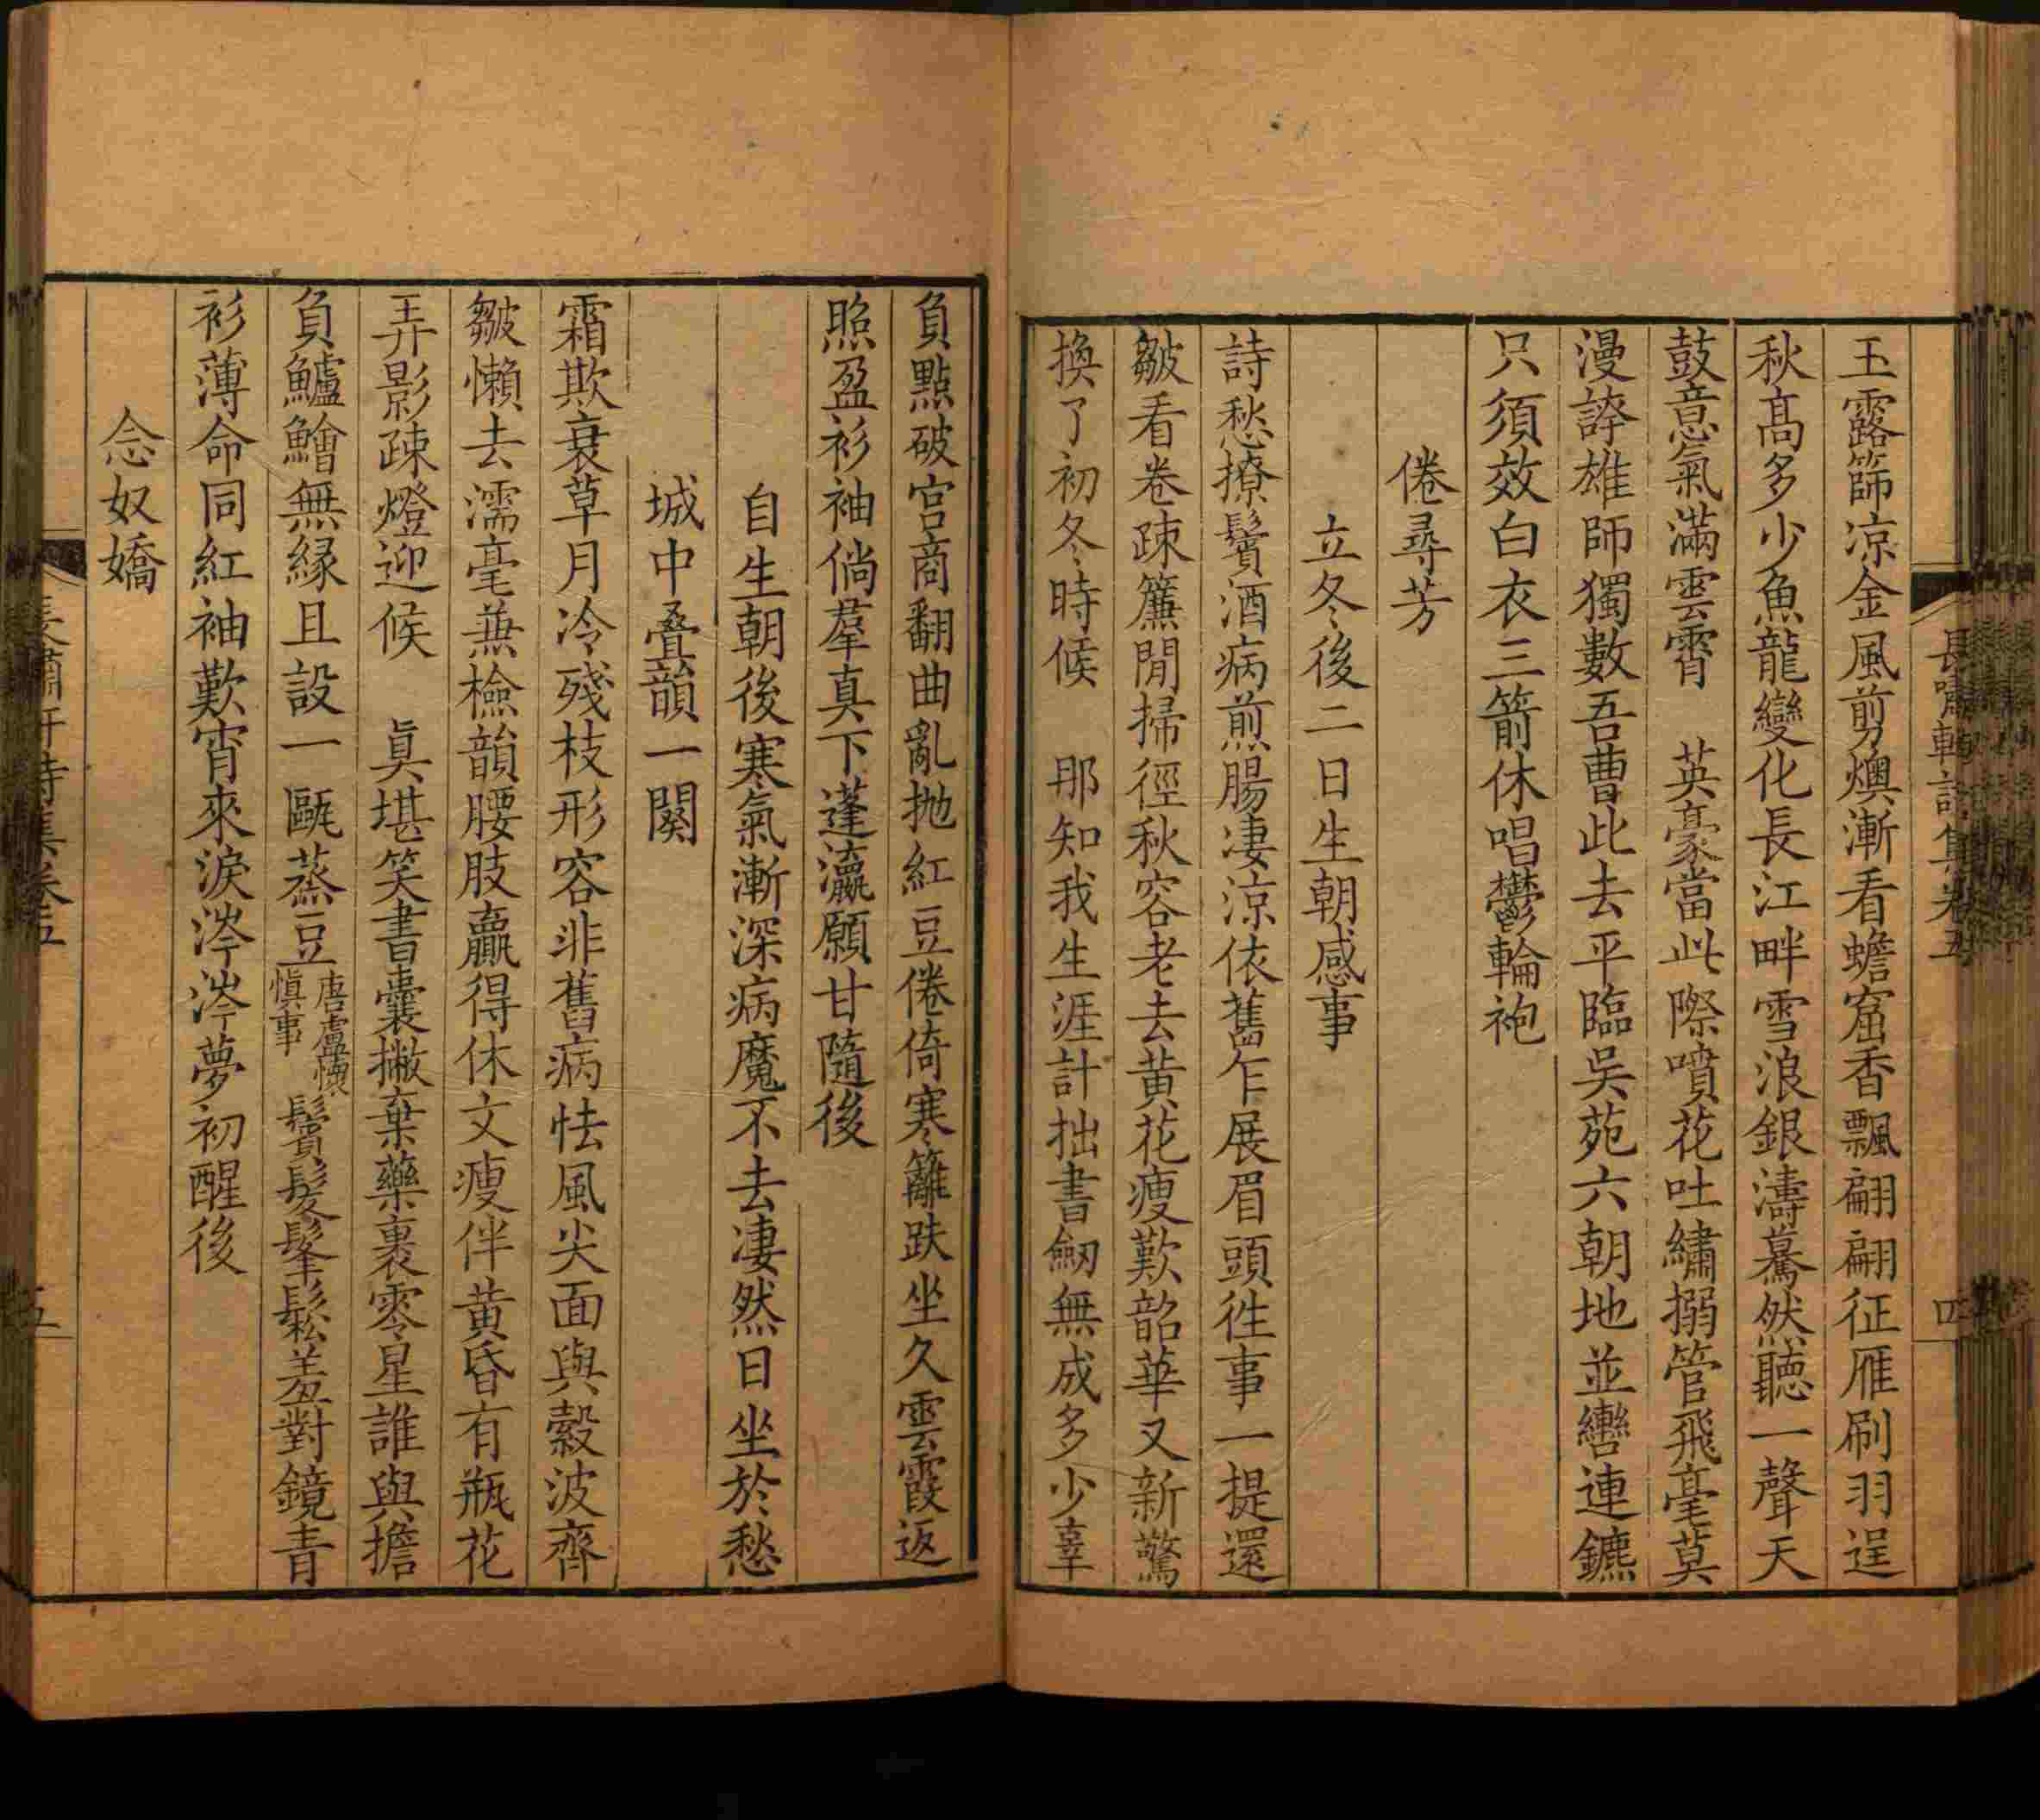 玉露篩凉金風剪燠漸看蟾窟香飄翩翩征雁刷羽逞
秋高多少魚龍變化長江畔雪浪銀濤驀然聽一聲天
鼓意氣滿雲霄　英豪當此際噴花吐繡搦管飛毫莫
漫誇雄師獨數吾曹此去平臨吳苑六朝地並轡連鑣
只須效白衣三箭休唱鬱輪袍
倦尋芳
立冬後二日生朝感事
詩愁撩鬢酒病煎腸凄涼依舊乍展眉頭徃事一提還
皺看卷疎簾閒掃徑秋容老去黄花瘦歎韶華又新驚
換了初冬時候　那知我生涯計拙書劒無成多少辜
負點破宫商翻曲亂抛紅豆倦倚寒籬趺坐久雲霞返
照盈衫袖倘羣真下蓬瀛願甘隨後
自生朝後寒氣漸深病魔不去凄然日坐於愁
城中叠韻一闋
霜欺衰草月冷殘枝形容非舊病怯風尖面與縠波齊
皺懶去濡毫兼檢韻腰肢贏得休文瘦伴黄昏有瓶花
弄影疎燈迎候　真堪笑書囊撇棄藥裹零星誰與擔
負鱸鱠無緣且設一甌蒸豆唐盧懷慎事鬢髮鬅鬆羞對鏡青
衫薄命同紅袖歎宵來淚涔涔夢初醒後
念奴嬌
長嘯軒詩集卷五
四
長嘯軒詩集卷五
五